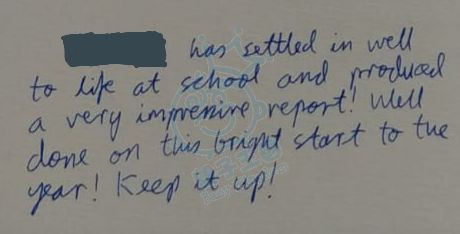 has settled in well
to life at school and produced
a very impressive report! Well
done on this bright start to the
year! Keep it up!